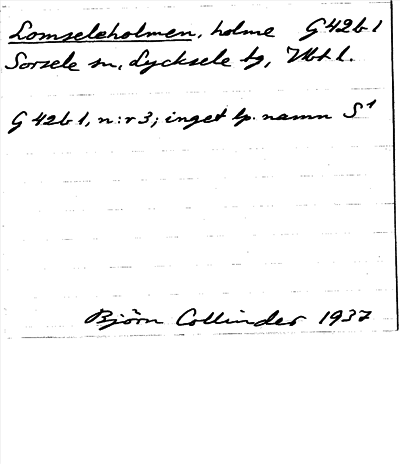 Lomseleholmen, holme G42b1
Sorsele sn, Lycksele tg, Vbtl.
G 42b1, n:r3; inget lp. namn S¹
Björn Collinder 1937